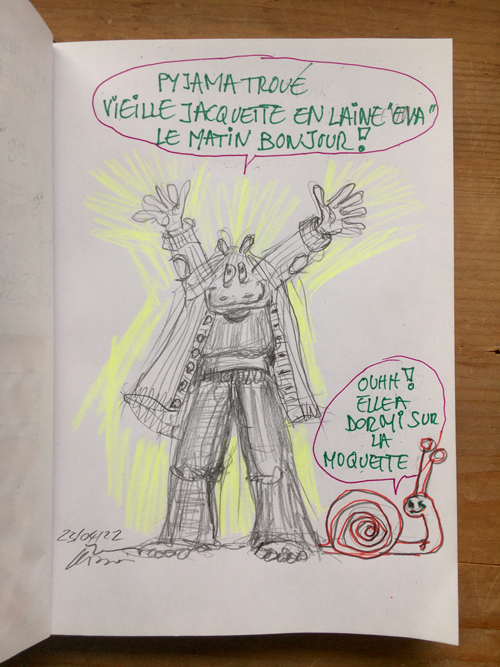 PYJAMA TROUÉ
VIEILLE JACQUETTE EN LAINE "EVA"
LE MATIN BONJOUR!
OUHH!
ELLE A
DORMI SUR
LA
MOQUETTE
23/04/22